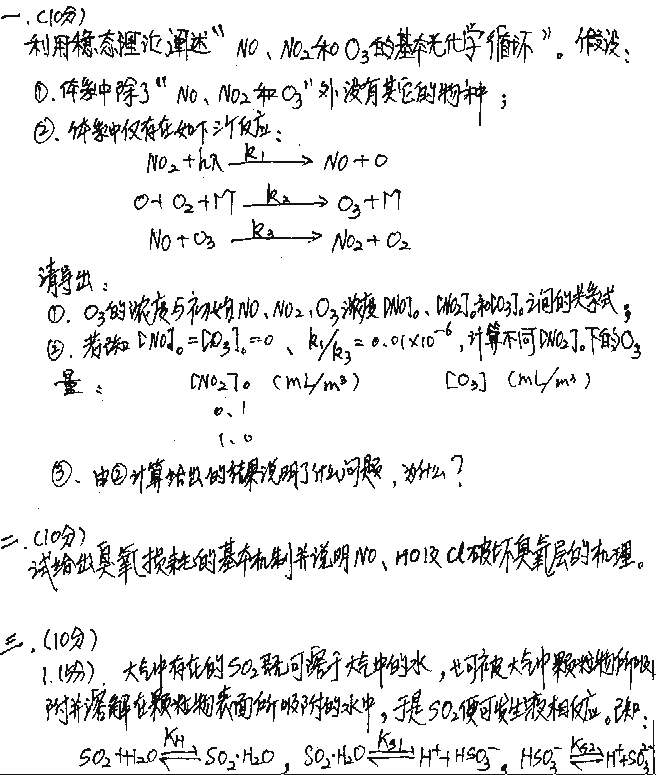 一.(10分)
利用稳态理论阐述“NO、NO2和O3的基本光化学循环”。假设:
①.体系中除了“NO、NO2和O3”外没有其它的物种;
②.体系中仅存在如下三个反应:
NO2+hλ —k1→ NO+O
O+O2+M —k2→ O3+M
NO+O3 —k3→ NO2+O2
请导出:
①.O3的浓度与初始NO、NO2、O3浓度[NO]0、[NO2]0和[O3]0之间的关系式;
②.若[NO]0=[O3]0=0、k1/k3=0.01×10-6,计算不同[NO2]0下的O3
量: [NO2]0 (mL/m3) [O3] (mL/m3)
0.1
1.0
③.由②计算给出的结果说明了什么问题,为什么?
二.(10分)
试给出臭氧损耗的基本机制并说明NO、HO及Cl破坏臭氧层的机理。
三.(10分)
1.(5分).大气中存在的SO2既可溶于大气中的水,也可被大气中颗粒物所吸
附并溶解在颗粒物表面所吸附的水中,于是SO2便可发生液相反应。已知:
SO2+H2O ⇌KH SO2·H2O, SO2·H2O ⇌Ks1 H++HSO3-, HSO3- ⇌Ks2 H++SO32-